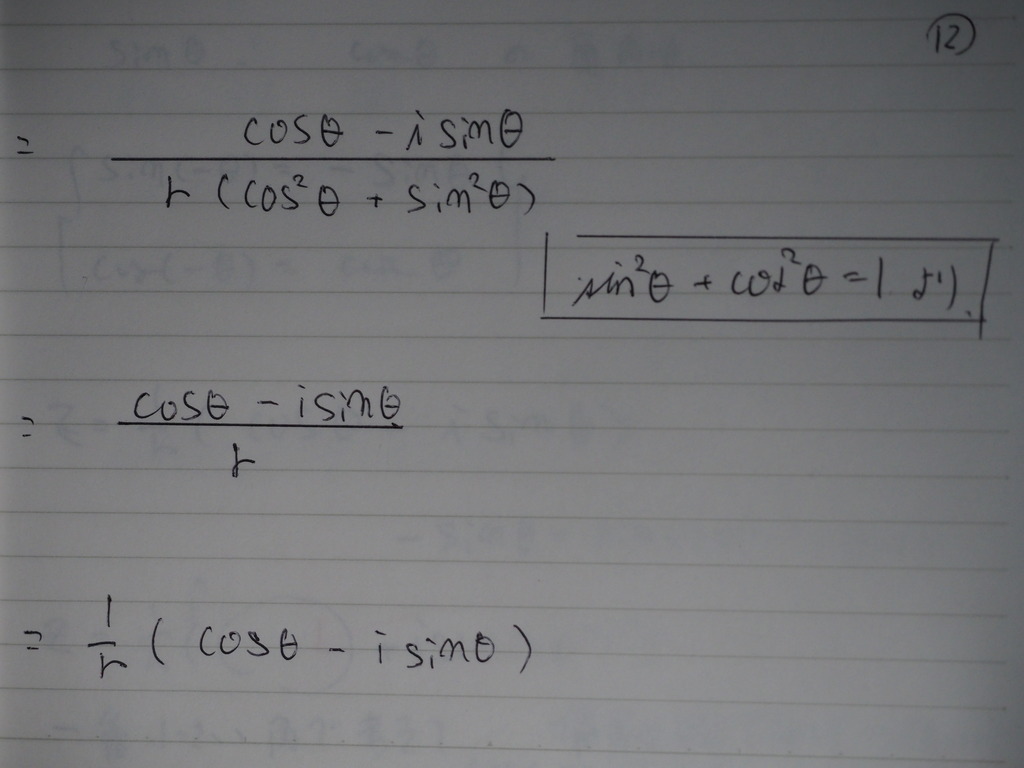 ⑫
= \frac{cosθ - i sinθ}{r (cos²θ + sin²θ)}
sin²θ + cos²θ = 1 より
= \frac{cosθ - i sinθ}{r}
= \frac{1}{r} ( cosθ - i sinθ )